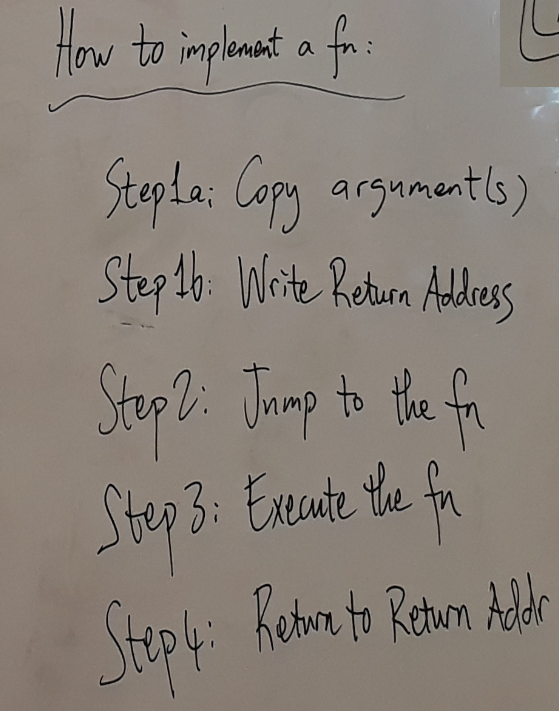 How to implement a fn:
Step1a: Copy argument(s)
Step1b: Write Return Address
Step2: Jump to the fn
Step3: Execute the fn
Step4: Return to Return Addr